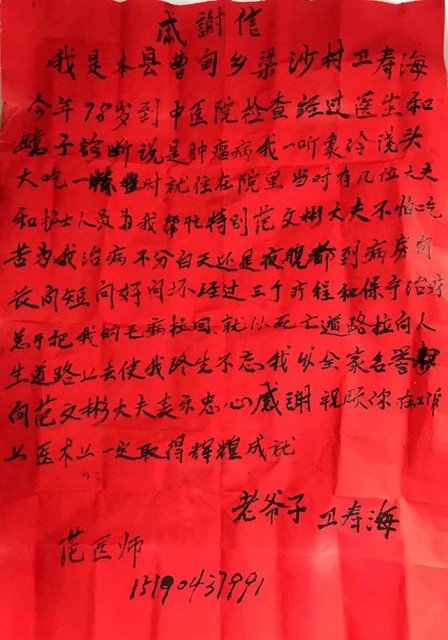 感謝信
我是本县曹甸乡梁沙村卫寿海
今年78岁到中医院检查经过医生和
诊断说是肿瘤病我一听象冷浇头
大吃一惊当时就住在院里当时有几位大夫
和护士人员为我帮忙特别范文彬大夫不怕吃
苦为我治病不分白天还是夜晚都到病房问
长问短问好问坏经过三个疗程和保守治疗
总于把我的毛病拉回就从死亡道路拉向人
生道路上去使我终生不忘我以全家名誉
向范文彬大夫表示忠心感謝祝愿你在工作
上医术上一定取得辉煌成就
老爷子 卫寿海
范医师
15190437991